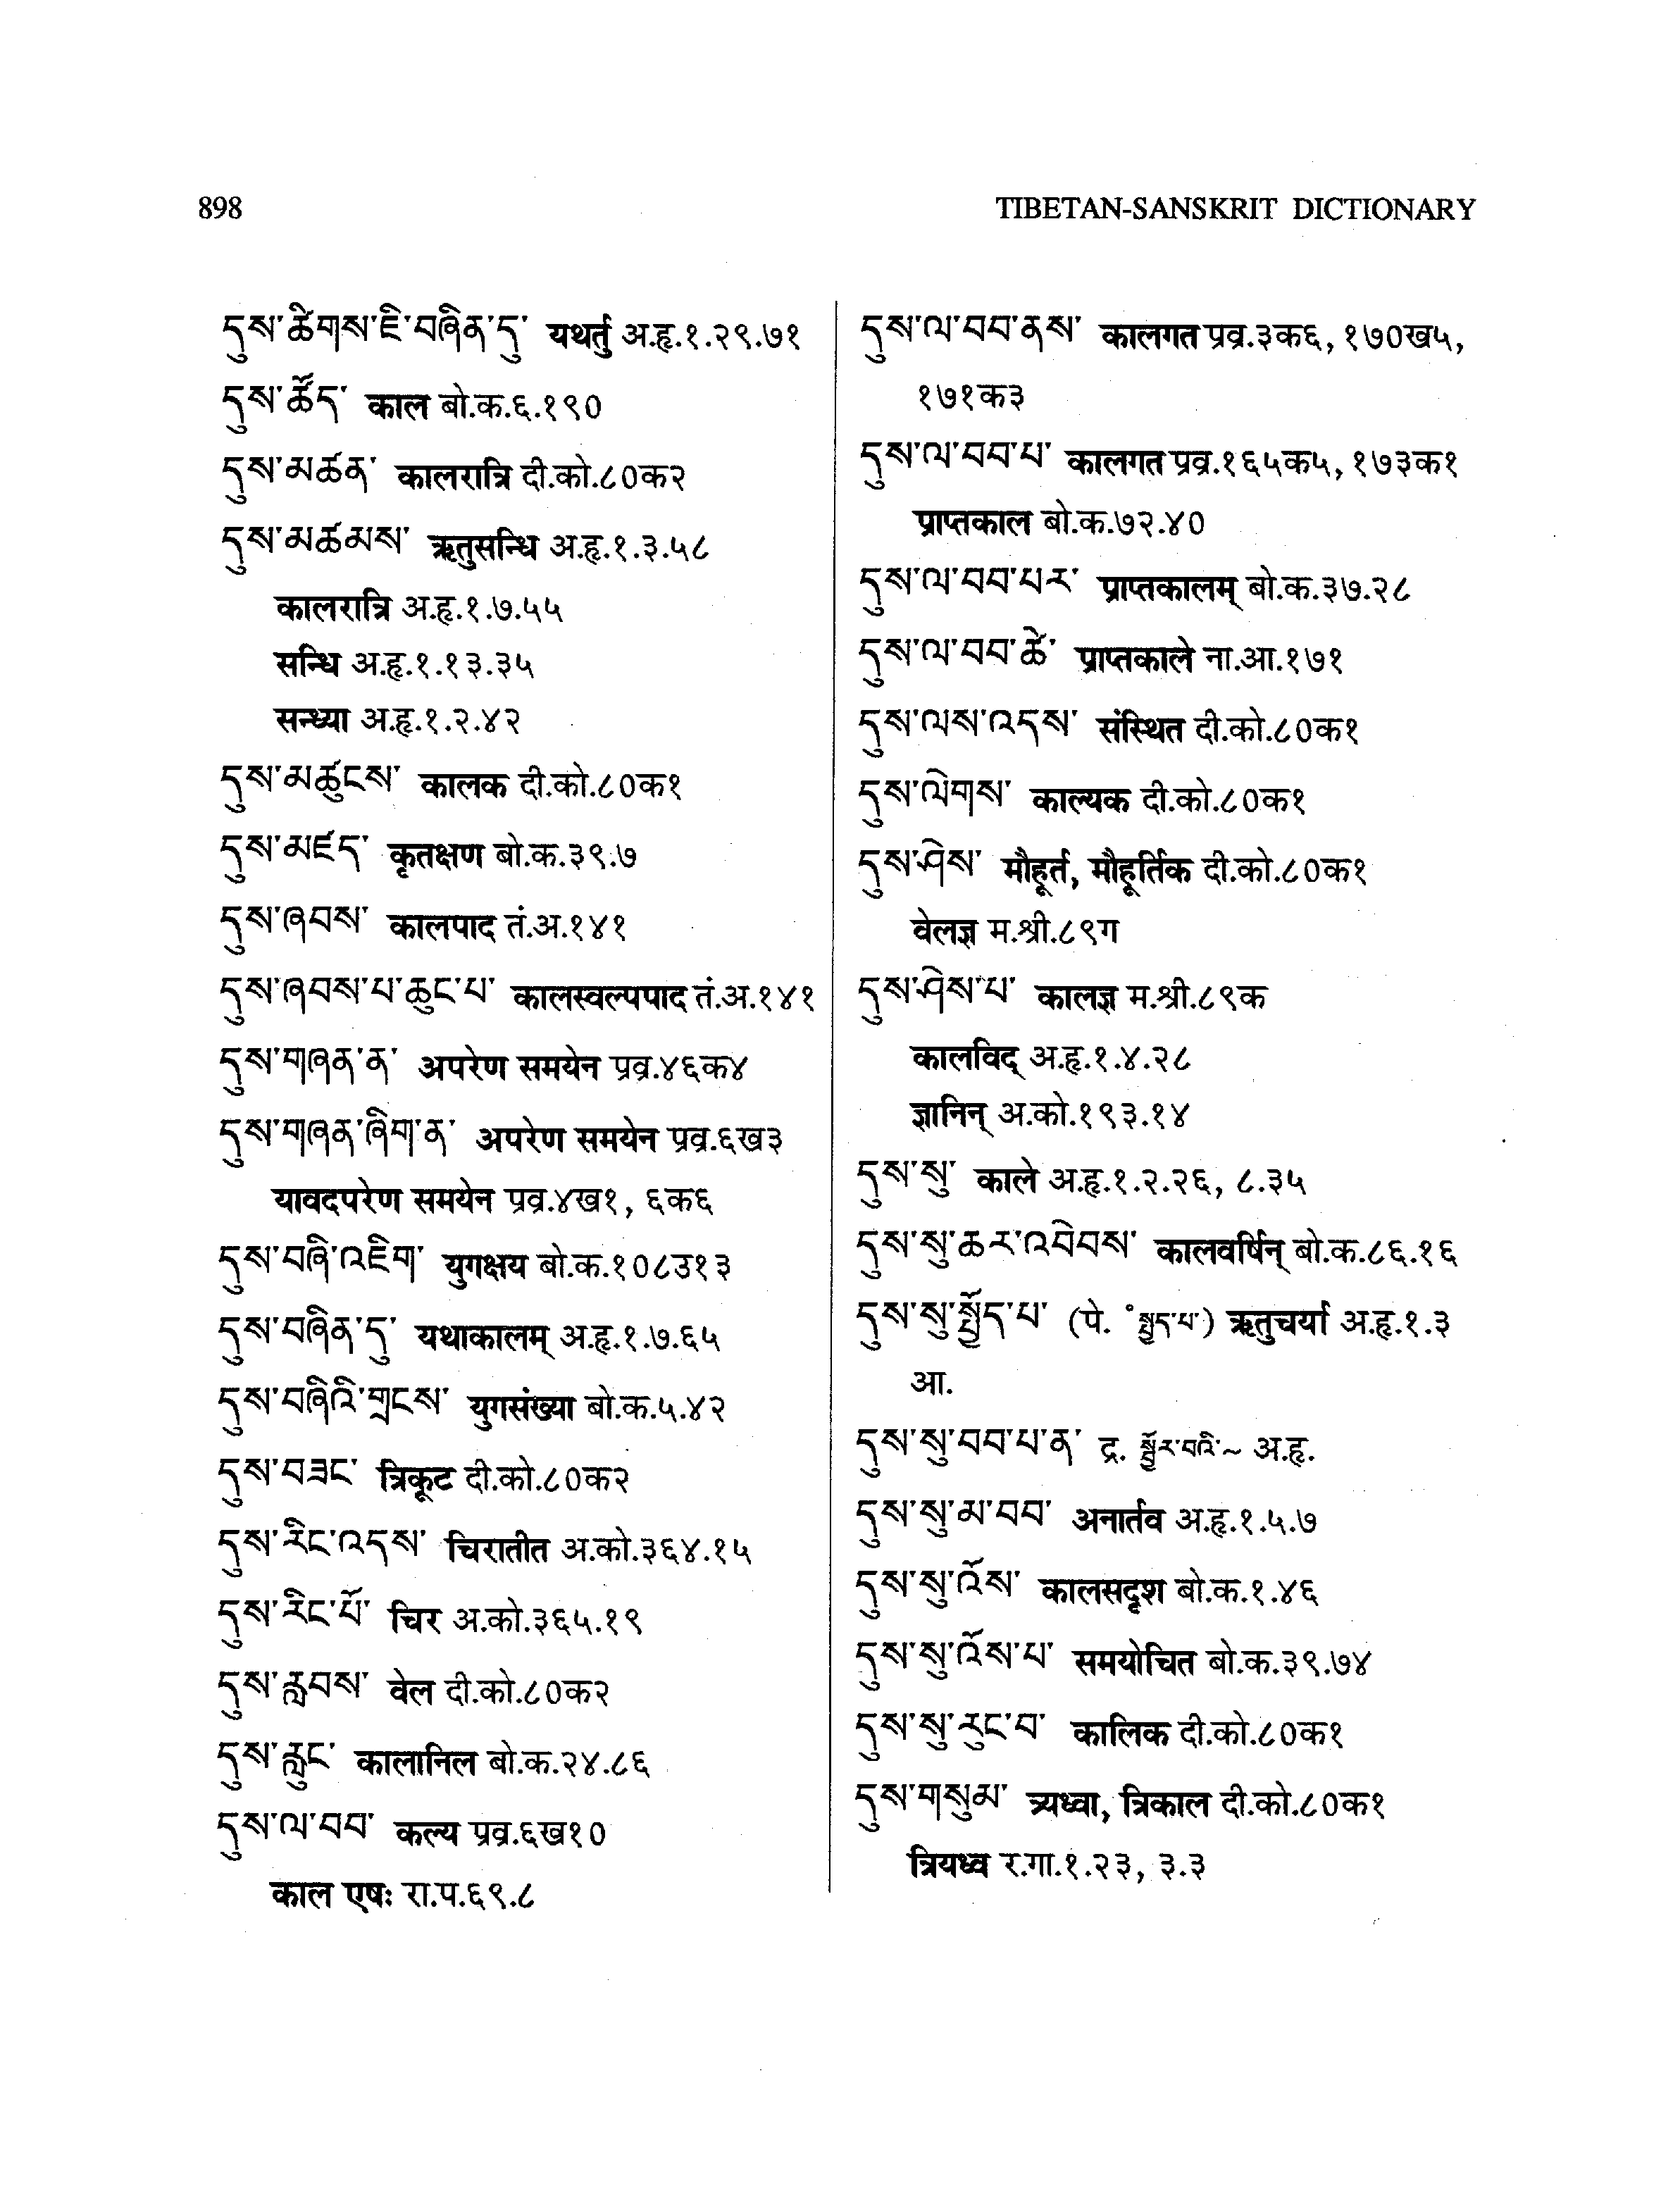 898
TIBETAN-SANSKRIT DICTIONARY
དུས་ཚིགས་ཇི་བཞིན་དུ་ यथर्तु अ.हृ.१.२९.७१
དུས་ཚོད་ काल बो.क.६.१९०
དུས་མཚན་ कालरात्रि दी.को.८०क२
དུས་མཚམས་ ऋतुसन्धि अ.हृ.१.३.५८
कालरात्रि अ.हृ.१.७.५५
सन्धि अ.हृ.१.१३.३५
सन्ध्या अ.हृ.१.२.४२
དུས་མཚུངས་ कालक दी.को.८०क१
དུས་མཛད་ कृतक्षण बो.क.३९.७
དུས་ཞབས་ कालपाद तं.अ.१४१
དུས་ཞབས་པ་ཆུང་པ་ कालस्वल्पपाद तं.अ.१४१
དུས་གཞན་ན་ अपरेण समयेन प्रव्र.४६क४
དུས་གཞན་ཞིག་ན་ अपरेण समयेन प्रव्र.६ख३
यावदपरेण समयेन प्रव्र.४ख१, ६क६
དུས་བཞི་འཇིག་ युगक्षय बो.क.१०८उ१३
དུས་བཞིན་དུ་ यथाकालम् अ.हृ.१.७.६५
དུས་བཞིའི་གྲངས་ युगसंख्या बो.क.५.४२
དུས་བཟང་ त्रिकूट दी.को.८०क२
དུས་རིང་འདས་ चिरातीत अ.को.३६४.१५
དུས་རིང་པོ་ चिर अ.को.३६५.१९
དུས་རླབས་ वेल दी.को.८०क२
དུས་རླུང་ कालानिल बो.क.२४.८६
དུས་ལ་བབ་ कल्य प्रव्र.६ख१०
काल एषः रा.प.६९.८
དུས་ལ་བབ་ནས་ कालगत प्रव्र.३क६, १७०ख५,
१७१क३
དུས་ལ་བབ་པ་ कालगत प्रव्र.१६५क५, १७३क१
प्राप्तकाल बो.क.७२.४०
དུས་ལ་བབ་པར་ प्राप्तकालम् बो.क.३७.२८
དུས་ལ་བབ་ཚེ་ प्राप्तकाले ना.आ.१७१
དུས་ལས་འདས་ संस्थित दी.को.८०क१
དུས་ལེགས་ काल्यक दी.को.८०क१
དུས་ཤེས་ मौहूर्त, मौहूर्तिक दी.को.८०क१
वेलज्ञ म.श्री.८९ग
དུས་ཤེས་པ་ कालज्ञ म.श्री.८९क
कालविद् अ.हृ.१.४.२८
ज्ञानिन् अ.को.१९३.१४
དུས་སུ་ काले अ.हृ.१.२.२६, ८.३५
དུས་སུ་ཆར་འབེབས་ कालवर्षिन् बो.क.८६.१६
དུས་སུ་སྤྱོད་པ་ (पे. ॰སྤྱད་པ་) ऋतुचर्या अ.हृ.१.३
आ.
དུས་སུ་བབ་པ་ན་ द्र. སྦྱོར་བའི་~ अ.हृ.
དུས་སུ་མ་བབ་ अनार्तव अ.हृ.१.५.७
དུས་སུ་འོས་ कालसदृश बो.क.१.४६
དུས་སུ་འོས་པ་ समयोचित बो.क.३९.७४
དུས་སུ་རུང་བ་ कालिक दी.को.८०क१
དུས་གསུམ་ त्र्यध्वा, त्रिकाल दी.को.८०क१
त्रियध्व र.गा.१.२३, ३.३